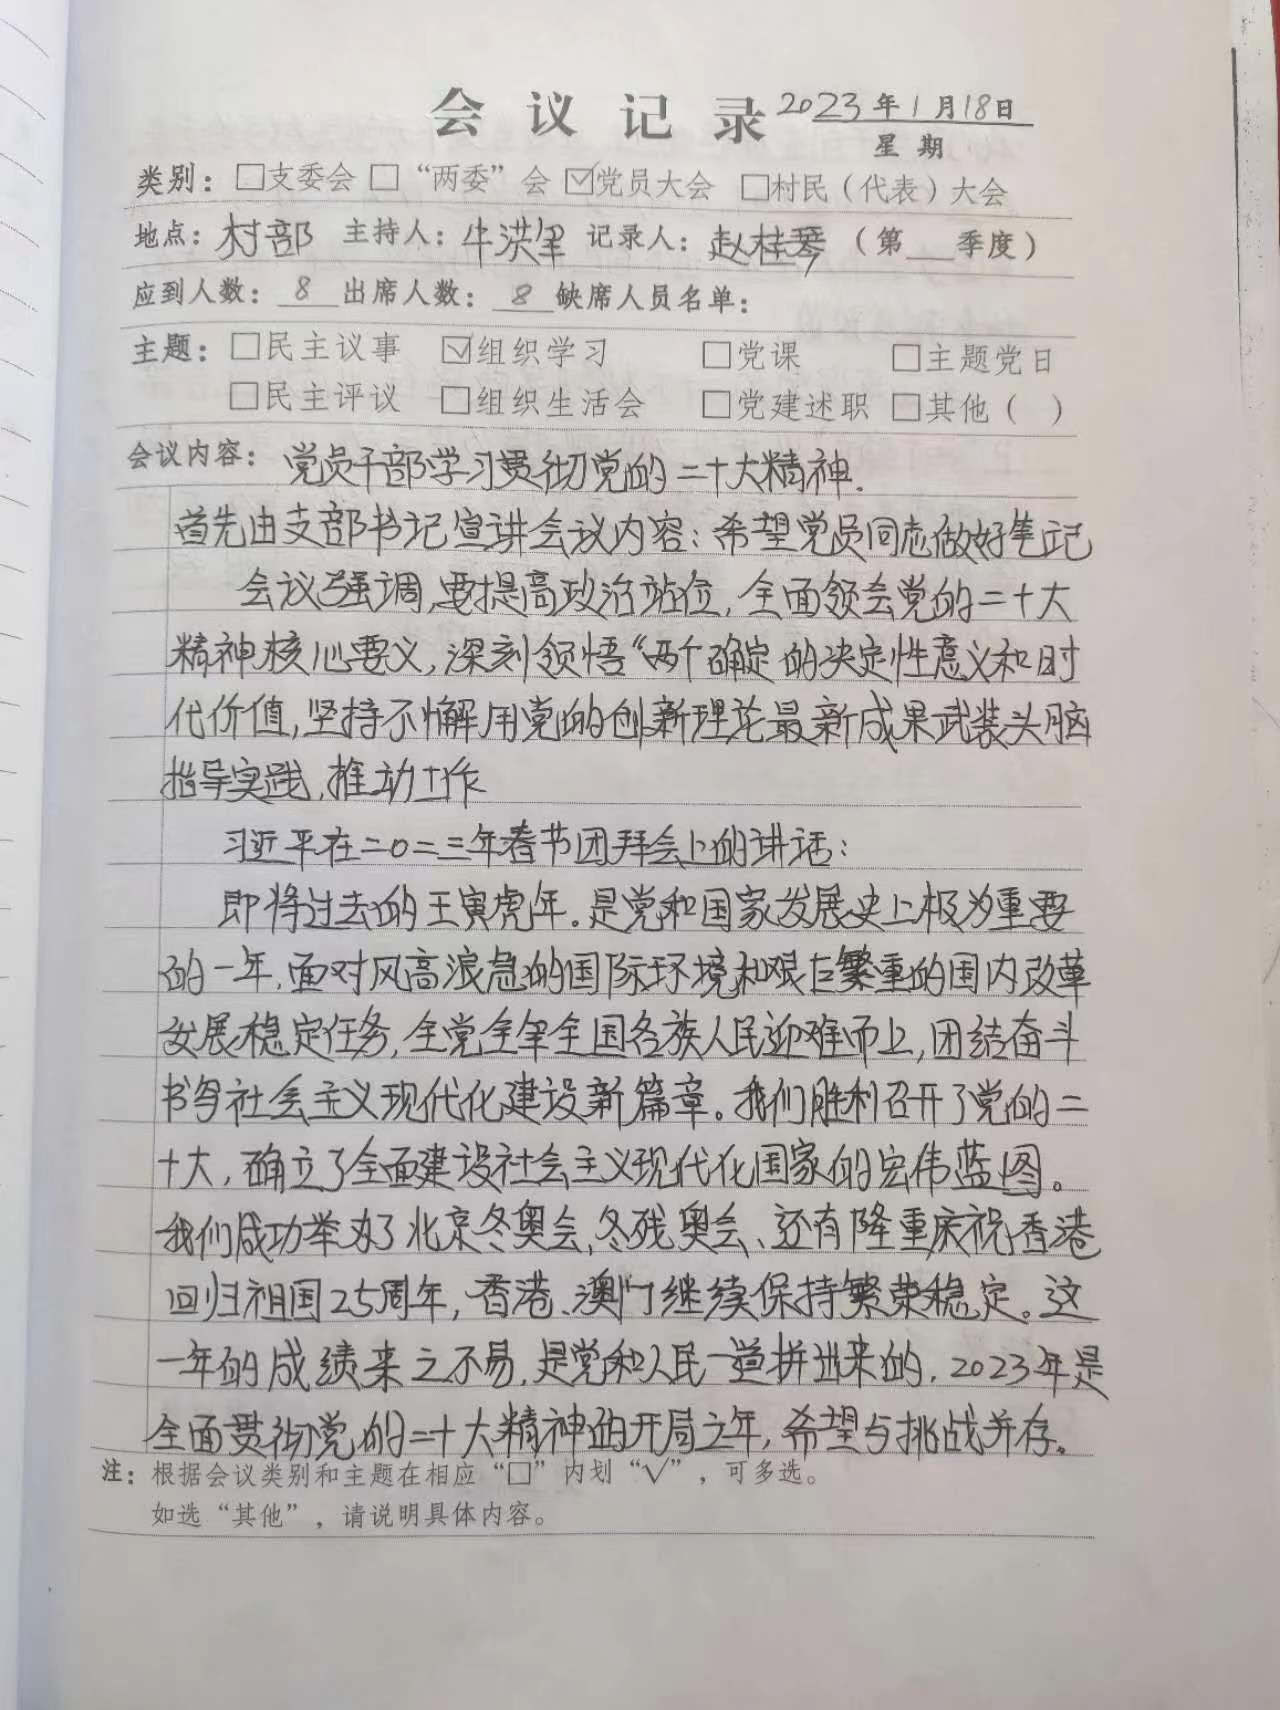 会议记录 2023年1月18日
星期
类别：□支委会 □“两委”会 ☑党员大会 □村民（代表）大会
地点：村部 主持人：牛洪军 记录人：赵桂琴（第 季度）
应到人数：8 出席人数：8 缺席人员名单：
主题：□民主议事 ☑组织学习 □党课 □主题党日
□民主评议 □组织生活会 □党建述职 □其他（ ）
会议内容：党员干部学习贯彻党的二十大精神.
首先由支部书记宣讲会议内容：希望党员同志做好笔记
会议强调,要提高政治站位,全面领会党的二十大
精神核心要义,深刻领悟“两个确定的决定性意义和时
代价值,坚持不懈用党的创新理论最新成果武装头脑
指导实践,推动工作
习近平在二0二三年春节团拜会上的讲话：
即将过去的王寅虎年。是党和国家发展史上极为重要
的一年,面对风高浪急的国际环境和艰巨繁重的国内改革
发展稳定任务,全党全军全国各族人民迎难而上,团结奋斗
书写社会主义现代化建设新篇章。我们胜利召开了党的二
十大,确立了全面建设社会主义现代化国家的宏伟蓝图。
我们成功举办了北京冬奥会,冬残奥会、还有隆重庆祝香港
回归祖国25周年,香港、澳门继续保持繁荣稳定。这
一年的成绩来之不易,是党和人民一道拼出来的,2023年是
全面贯彻党的二十大精神的开局之年,希望与挑战并存。
注：根据会议类别和主题在相应“□”内划“√”，可多选。
如选“其他”，请说明具体内容。